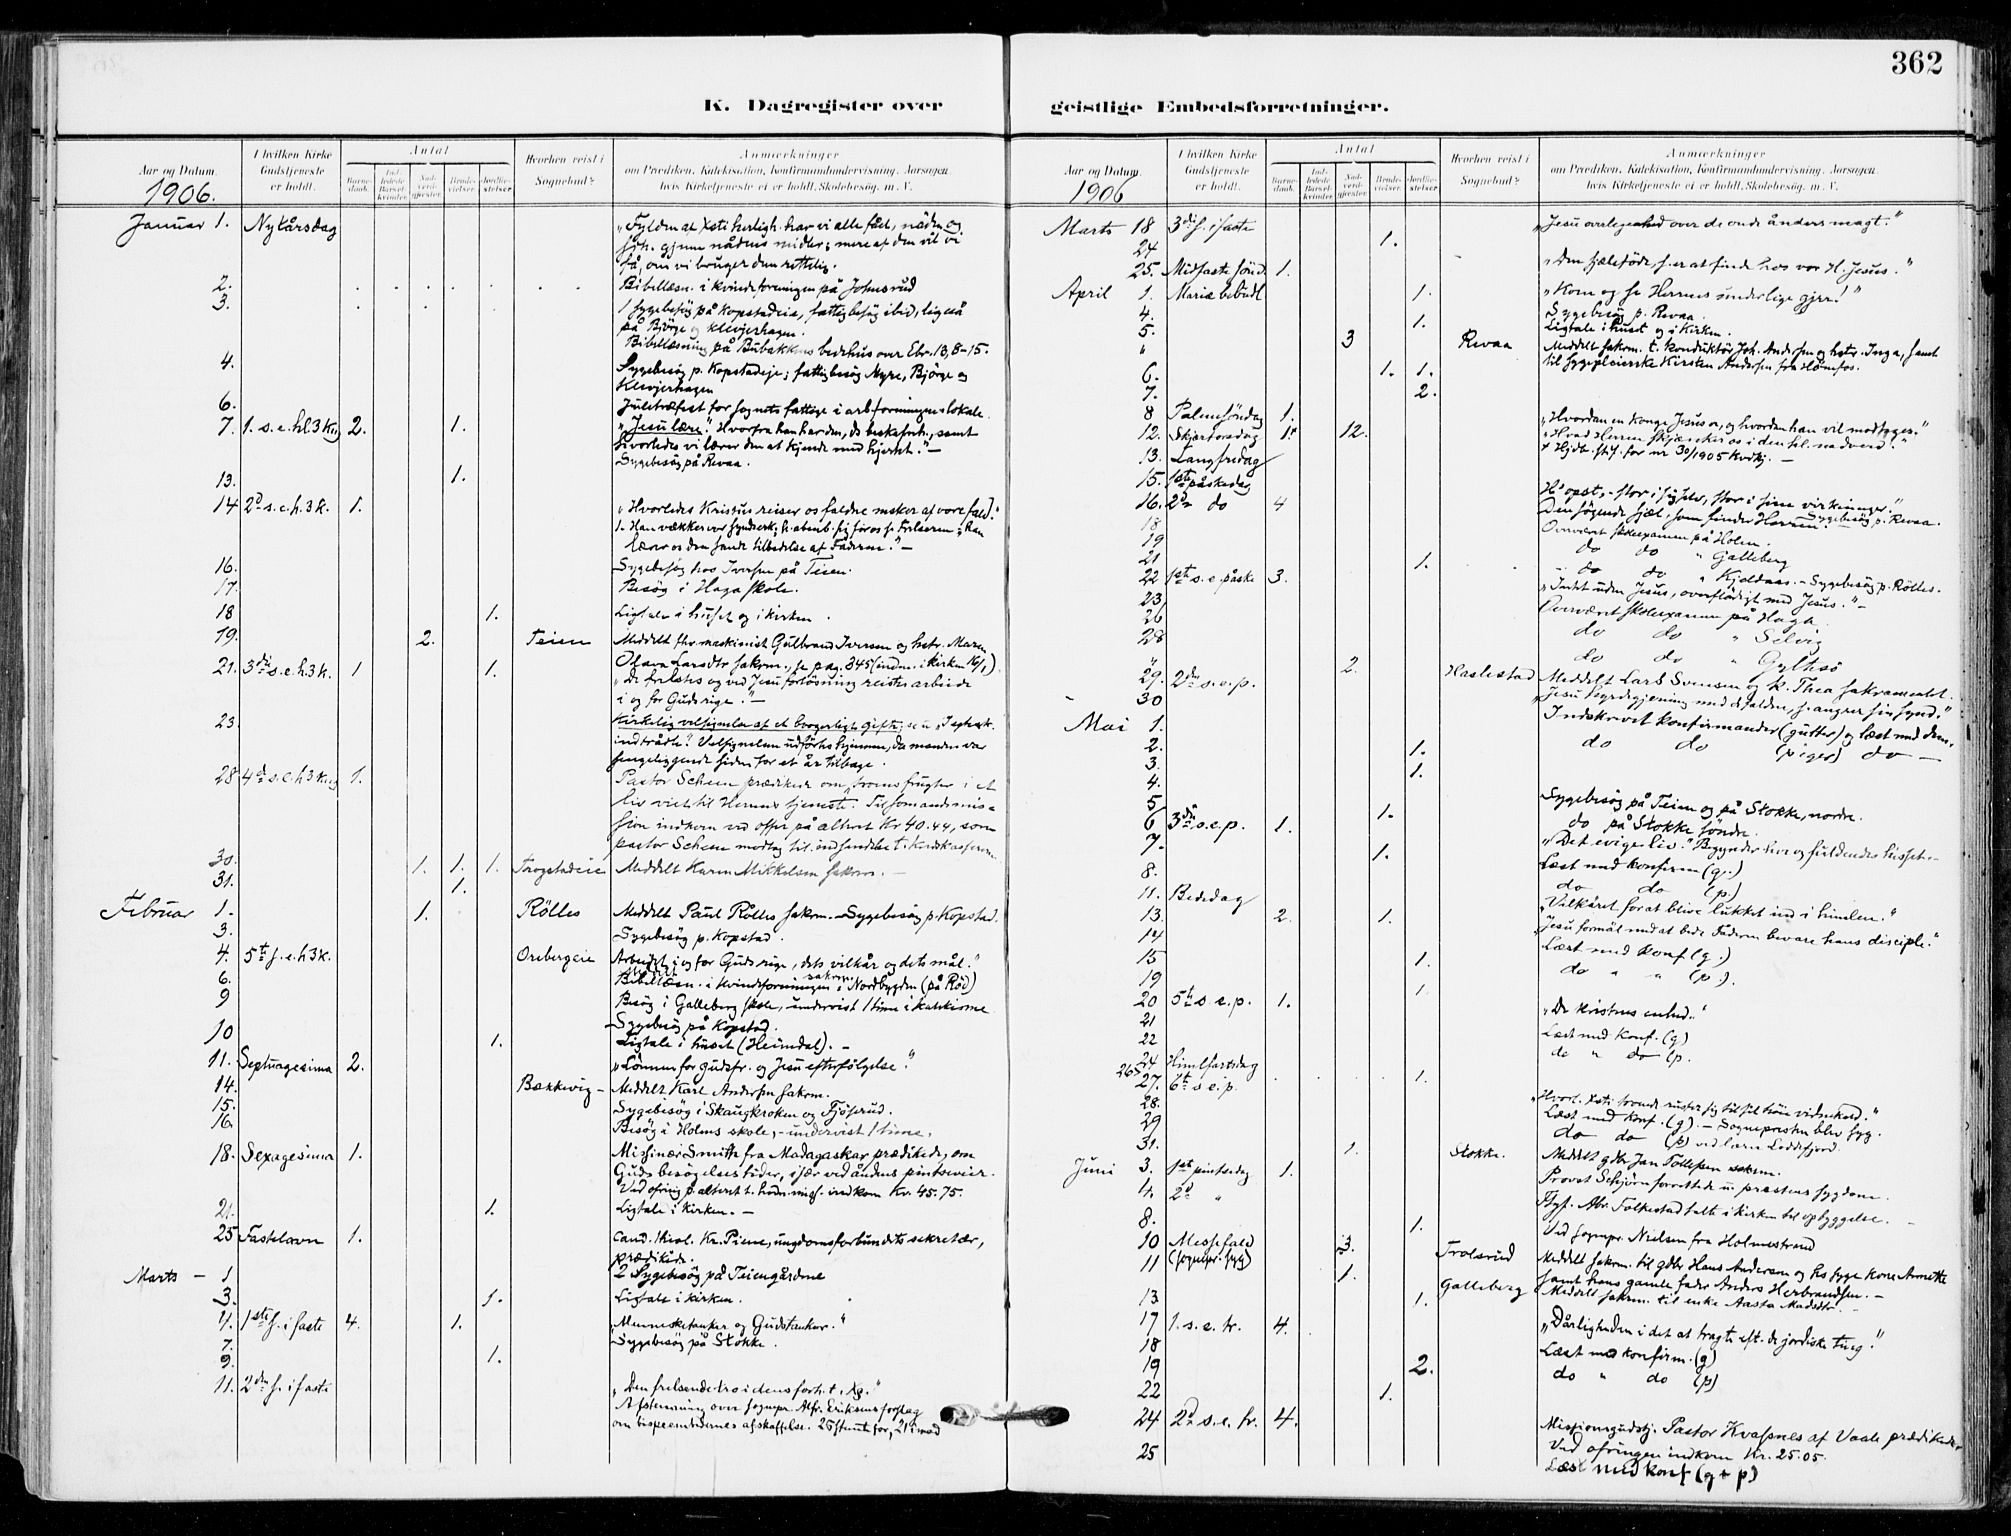 362
K. Dagregister over
Aar og Datum.
I hvilken Kirke Gudstjeneste er holdt.
Antal
Barnedaab.
Indledede Barselkvinder
Nadverdgjester
Brudevielser
Jordfæstelser
Hvorhen reist i Sognebud?
Anmærkninger
om Prædiken, Katekisation, Konfirmandundervisning, Aarsagen
hvis Kirketjeneste ei er holdt, Skolebesøg, m. V.
1906.
Januar 1. Nytårsdag
få, om vi bruger den rettelig.
2. Bibellæsn. i kvindeforeningen på Johnsrud
3. 1 Sygebesög på Kopstadeie, fattigbesög ibid, ligeså
på Björge og Klevjerhagen.
Bibellæsning på Bubakkens bedehus over Ebr. 13, 8-15.
4. Sygebesög p. Kopstadeje; fattigbesög Nyre, Björge og
Klevjerhagen
6. Juletræfest for sognets fattige i arbforeningens lokale.
7. 1. s. e. hl. 3 Kg 2. 1. "Jesu lære." Hvorfra han har den, ds beskafenh., samt
hvorledes vi lærer den at kjende med hjertet. —
Sygebesög på Revaa.
13. 1.
14 2d s. e. h. 3 k. 1. "Hvorledes Kristus reiser os faldne
lærer os den sande tilbedelse af Faderen." —
16. Sygebesög hos Iversen på Teien.
17. Besög i Haga skole.
18 1. Ligtale i huset og i kirken.
19. 2. Teien Meddelt fhv. maskinist Gulbrand Iversen og hstr. Maren
Olava Larsdtr sakrm., se pag. 345 (indm. i kirken 16/1).
21. 3die s. e. h. 3 k. 1 1. "De frelstes og ved Jesu forlösning reistes arbeide
i og for Guds rige." —
23. Kirkelig velsignelse af et borgerligt gifte
indtrådt." Velsignelsen udförtes hjemme, da manden var
sengeliggende siden for et år tilbage.
28 4de s. e. h 3 kg 1. Pastor Scheen prædikede om troens frugter i et
liv viet til Herrens tjeneste. Til
sion indkom ved offer på alteret Kr 40.44, som
pastor Scheen modtog til indsendelse t.
30. 1. 1. 1. Trogstadeie Meddelt Karen Mikkelsen sakrm. —
31. 1.
Februar 1. 1. Rölles Meddelt Paul Rölles sakrm. — Sygebesög p. Kopstad.
3. Sygebesög p. Kopstad.
4. 5te s. e. h 3 k. Orebergeie Arbeidet i og for Guds rige, dets vilkår og dets mål."
6. Bibellæsn. i Kvindeforeningen i Nordbygden (på Röd)
9 Besög i Galleberg skole, undervist 1 time i katekisme
Sygebesög på Kopstad.
10 1. Ligtale i huset (Heimdal). —
11. Septuagesima 2. "Lönnen for gudsfr. og Jesu efterfölgelse."
14. Bækkevig — Meddelt Karl Andersen sakrm.
15. Sygebesög i Skaugkroken og Fjöserud.
16 Besög i Holms skole, - undervist 1 time.
18. Sexagesima 1. Missionær Smith fra Madagaskar prædikede, om
Guds besögelsestider, især ved åndens pinseveir.
Ved ofring p. alteret t. hedn.miss. indkom Kr. 45.75.
21. 1. Ligtale i kirken. —
25 Fastelavn 1. Cand. theol. Kr. Piene, ungdomsforbundets sekretær,
prædikede.
Marts — 1 2 Sygebesög på Teiengårdene
3. 1. Ligtale i kirken.
4. 1ste s. i faste 4. 1. "Mennesketanker og Gudstanker."
7. Sygebesög på Stokke.
9. 1.
11. 2den s. i faste "Den frelsende tro
Afstemning over sognepr. Alfr. Eriksens forslag
om bispeembedernes afskaffelse. 25 stemte for, 21 imod
geistlige Embedsforretninger.
Aar og Datum.
I hvilken Kirke Gudstjeneste er holdt.
Antal
Barnedaab.
Indledede Barselkvinder
Nadverdgjester
Brudevielser
Jordfæstelser
Hvorhen reist i Sognebud?
Anmærkninger
om Prædiken, Katekisation, Konfirmandundervisning, Aarsagen
hvis Kirketjeneste ei er holdt, Skolebesøg, m. V.
1906
Marts 18 3die s. i faste "Jesu overlegenhed over de onde ånders magt."
24 1.
25. Midfaste sönd. 1. "Den sjæleföde, s. er at finde hos vor H. Jesus."
April 1. Mariæ bebudl 1. "Kom og se Herrens underlige gjern."
4. 1. Sygebesög p. Revaa.
5. Ligtale i huset og i kirken.
" 3 Revaa Meddelt sakrm. t. konduktör Joh. Andersen og hstr. Inga, samt
til sygepleierske Kirsten Andersen fra Hönefos.
6. 1. 1.
7. 2.
8 Palmesöndag 1. "Hvordan en konge Jesus er, og hvordan han vil modtages."
12. Skjærtorsdag 1. 12. "Hvad Herren skjænker os i den hl. nadverd."
13. Langfredag
15. 1ste påskedag
16. 2den do 4 Den sögende sjæl, som finder Herren. Sygebesög p. Revaa.
18 Overværet skoleexamen på Holm.
19 do do " Galleberg
21 1. do do " Kjeldaas. — Sygebesög p. Rölles.
22 1ste s. e. påske 3. "Intet uden Jesus, overflödigt med Jesus." —
23 Overværet skoleexamen på Haga
26 do do " Selvig
28 do do " Gylhsö
" 2. Haslestad Meddelt Lars Svensen og k. Thea sakramentet.
29. 2den s. e. p.
30 Indskrevet konfirmander (gutter) og læst med dem.
Mai 1. do do (piger) do —
2. 1.
3. 1.
4. Sygebesög på Teien og på Stokke, nordre.
5 1. do på Stokke söndre.
6 3die s. e. p. 1. "Det evige liv." Begynder her og fuldendes hisset.
7. 1. Læst med konfirm (g.)
8. do do (p.)
11. Bededag "Vilkåret for at blive lukket ind i himlen."
13. 2. 1. "Jesu formål med at bede Faderen bevare hans disciple."
14 Læst med konf (g.)
15 1. do " " (p.).
19 1.
20 5te s. e. p. 1. "De kristnes enhed."
21 Læst med konf. (g)
22 do " do (p.
24 Himlfartsdag
26
27. 6te s. e. p. 1.
28. Læst med konf. (g) — Sognepresten blev syg.
29 do do (p)
31. 1. Stokke. Meddelt gdbr Jan Tollefsen sakrm.
Juni 3. 1ste pintsedag 1. Provst Schjörn forrettede u. præstens sygdom.
4. 2d " Abr. Folkestad talte i kirken til opbyggelse.
8. 1.
10 Messefald (sognepr. syg) 3. Ved sognepr. Nielsen fra Holmestrand
11 Trolsrud Meddelt sakrm. til gdbr Hans Andersen og hs syge kone Annette
samt hans gamle fader Anders Herbrandsen. —
13 1. 1. Galleberg Meddelt sakrm. til enke Aasta Madsdtr. —
17 1. s. e. tr. 4. "Dårligheden i det at tragte eft. de jordiske ting."
18 Læst med konfirm. (g)
19 2. do " do (p)
22 1.
24 2d s. e. tr. 4. Missionsgudstj. Pastor Kvasnes af Vaale prædikede
Ved ofringen indkom Kr. 25.05.
25 Læst med konf (g + p)